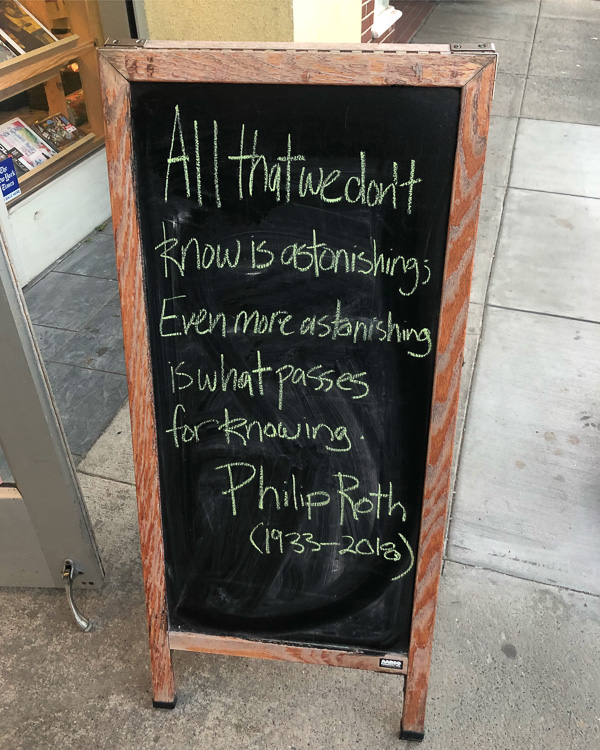 All that we don't
know is astonishing;
Even more astonishing
is what passes
for knowing.
Philip Roth
(1933-2018)
The
New York
Times